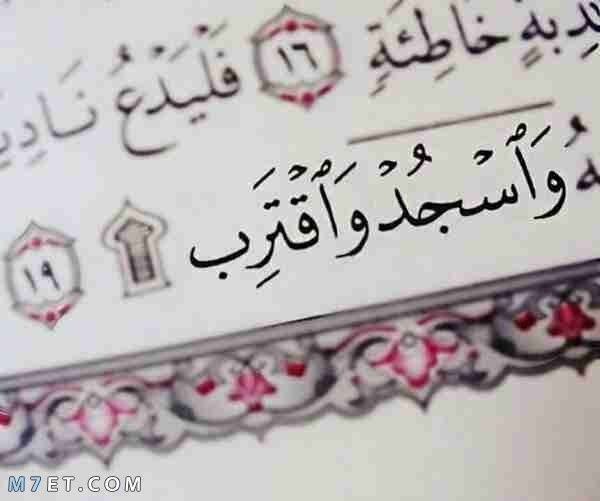 كَٰذِبَةٍ خَاطِئَةٍ ١٦ فَلْيَدْعُ
وَٱسْجُدْ وَٱقْتَرِب ۩ ١٩
M7ET.COM